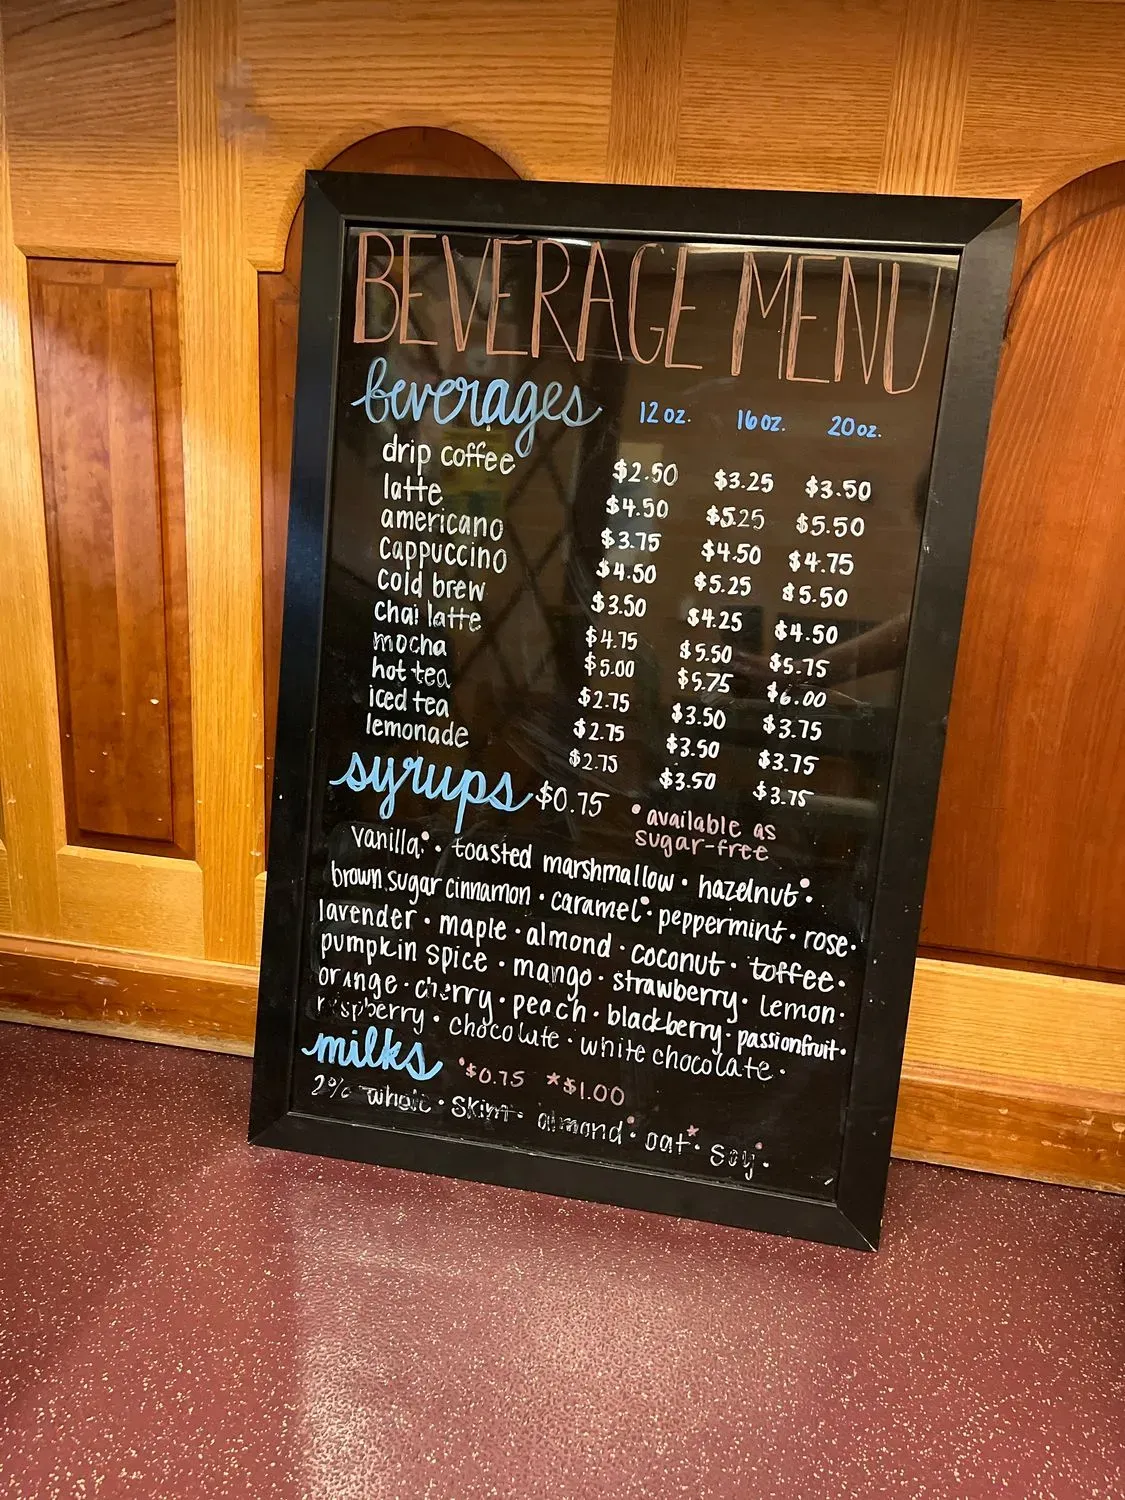 BEVERAGE MENU
beverages 12 oz. 16 oz. 20 oz.
drip coffee $2.50 $3.25 $3.50
latte $4.50 $5.25 $5.50
americano $3.75 $4.50 $4.75
cappuccino $4.50 $5.25 $5.50
cold brew $3.50 $4.25 $4.50
chai latte $4.75 $5.50 $5.75
mocha $5.00 $5.75 $6.00
hot tea $2.75 $3.50 $3.75
iced tea $2.75 $3.50 $3.75
lemonade $2.75 $3.50 $3.75
syrups $0.75 • available as
sugar-free
vanilla• • toasted marshmallow • hazelnut• •
brown sugar cinnamon • caramel• • peppermint • rose •
lavender • maple • almond • coconut • toffee •
pumpkin spice • mango • strawberry • lemon •
orange • cherry • peach • blackberry • passionfruit •
raspberry • chocolate • white chocolate •
milks •$0.75 *$1.00
2% whole • skim • almond• • oat* • soy• •